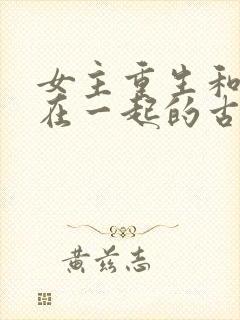 女主重生和
在一起的古
黄兹志